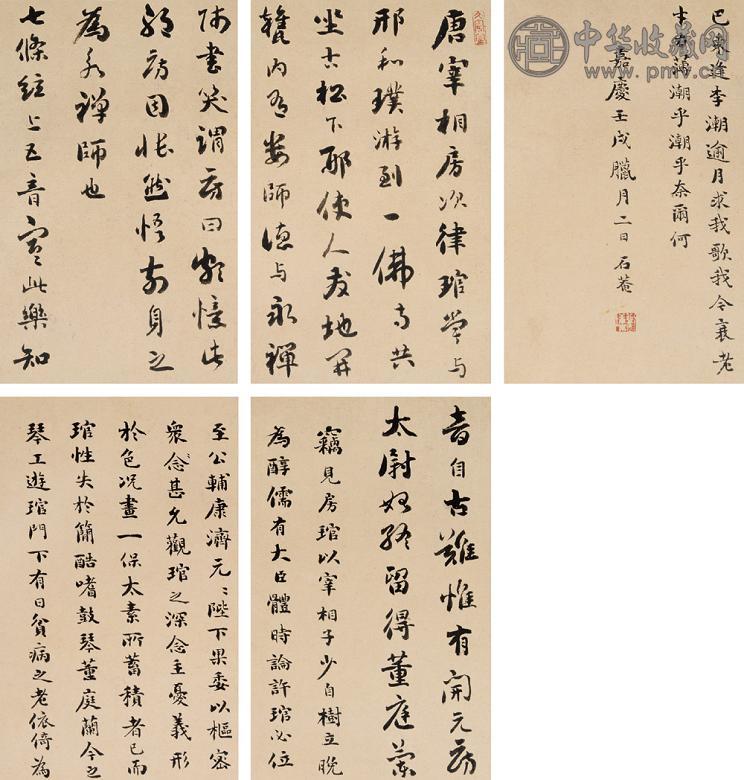 中华收藏网
巴東逢李潮逾月求我歌我今衰老
才力薄潮乎潮乎奈爾何
嘉慶壬戌臘月二日石菴
唐宰相房次律琯嘗與
邢和璞游到一佛寺共
坐古松下邢使人發地
甕内有婁師德與永禪
師書笑謂房曰頗憶此
耶房因悵然悟前身之
為永禪師也
七條絃上五音寒此樂知
音自古難惟有開元房
太尉始終留得董庭蘭
竊見房琯以宰相子少自樹立晚
為醇儒有大臣體時論許琯必位
至公輔康濟元〻陛下果委以樞密
衆念甚允觀琯之深念主憂義形
於色況畫一保太素所蓄積者已而
琯性失於簡酷嗜鼓琴董庭蘭今之
琴工遊琯門下有日貧病之老依倚為